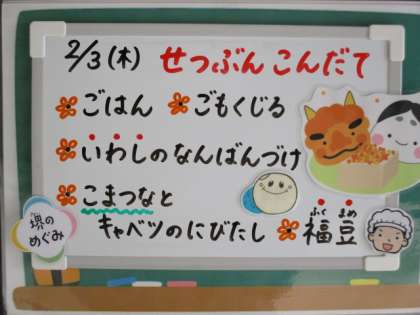 2/3(木) せつぶんこんだて
ごはん ごもくじる
いわしのなんばんづけ
こまつなと
キャベツのにびたし 福豆
ふく まめ
堺の
めぐみ